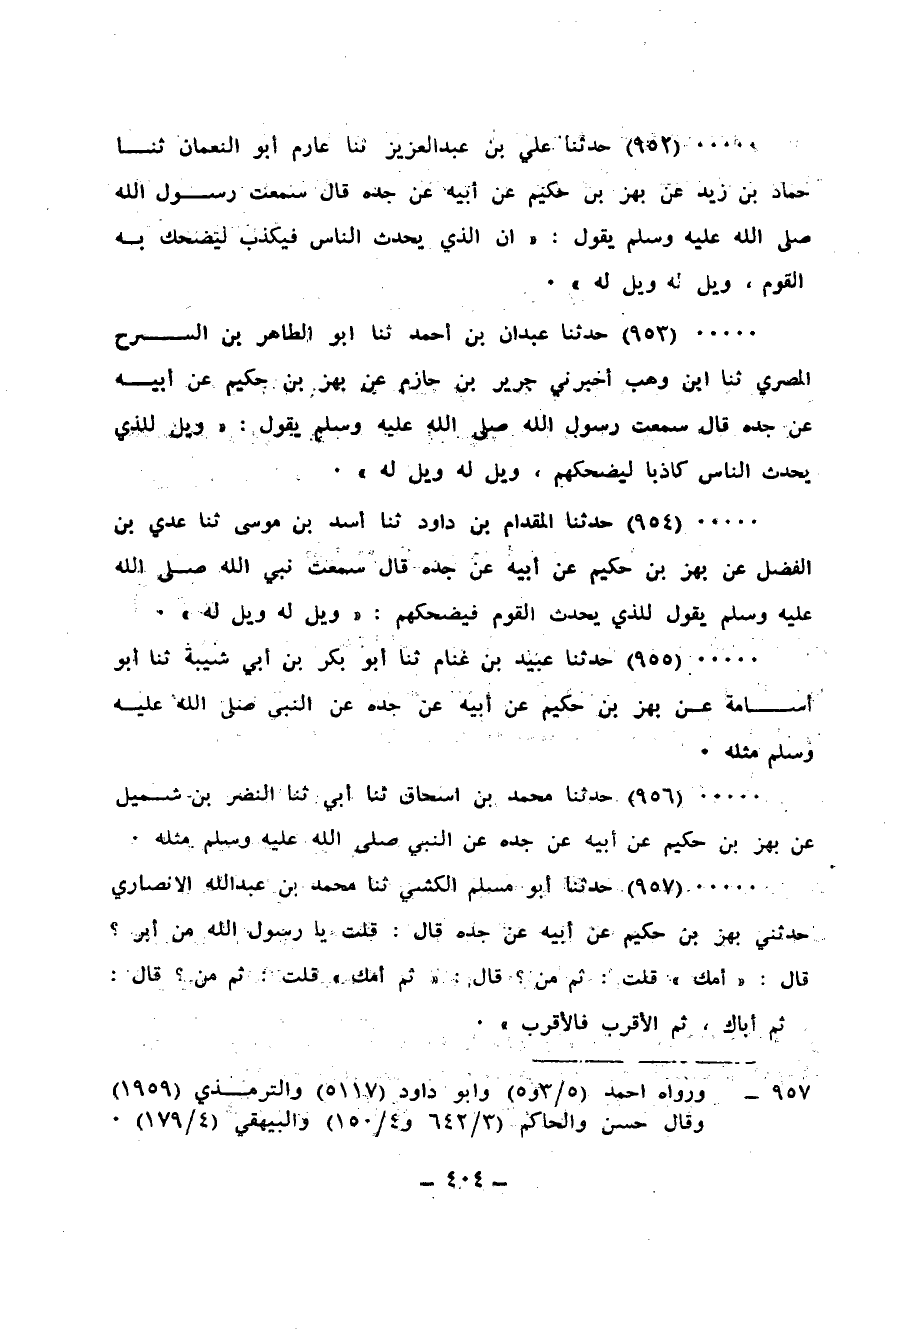 ٠٠٠٠٠ (٩٥٢) حدثنا علي بن عبدالعزيز ثنا عارم أبو النعمان ثنـــا
حماد بن زيد عن بهز بن حكيم عن أبيه عن جده قال سمعت رســـول الله
صلى الله عليه وسلم يقول : « ان الذي يحدث الناس فيكذب ليضحك بـــه
القوم ، ويل له ويل له » ٠
٠٠٠٠٠ (٩٥٣) حدثنا عبدان بن أحمد ثنا ابو الطاهر بن الســـرح
المصري ثنا ابن وهب أخبرني جرير بن حازم عن بهز بن حكيم عن أبيـــه
عن جده قال سمعت رسول الله صلى الله عليه وسلم يقول : « ويل للذي
يحدث الناس كاذبا ليضحكهم ، ويل له ويل له » ٠
٠٠٠٠٠ (٩٥٤) حدثنا المقدام بن داود ثنا أسد بن موسى ثنا عدي بن
الفضل عن بهز بن حكيم عن أبيه عن جده قال سمعت نبي الله صلى الله
عليه وسلم يقول للذي يحدث القوم فيضحكهم : « ويل له ويل له » ٠
٠٠٠٠٠ (٩٥٥) حدثنا عبيد بن غنام ثنا أبو بكر بن أبي شيبة ثنا أبو
أســـامة عـــن بهز بن حكيم عن أبيه عن جده عن النبي صلى الله عليـــه
وسلم مثله ٠
٠٠٠٠٠ (٩٥٦) حدثنا محمد بن اسحاق ثنا أبي ثنا النضر بن شـــميل
عن بهز بن حكيم عن أبيه عن جده عن النبي صلى الله عليه وسلم مثله ٠
٠٠٠٠٠ (٩٥٧) حدثنا أبو مسلم الكشي ثنا محمد بن عبدالله الانصاري
حدثني بهز بن حكيم عن أبيه عن جده قال : قلت يا رسول الله من أبر ؟
قال : « أمك » قلت : ثم من ؟ قال : « ثم أمك » قلت : ثم من ؟ قال :
ثم أباك ، ثم الأقرب فالأقرب » ٠
٩٥٧ ـ ورواه احمد (٣/٥و٥) وابو داود (٥١١٧) والترمـــذي (١٩٥٩)
وقال حسن والحاكم (٦٤٢/٣ و١٥٠/٤) والبيهقي (١٧٩/٤) ٠
ـ ٤٠٤ ـ